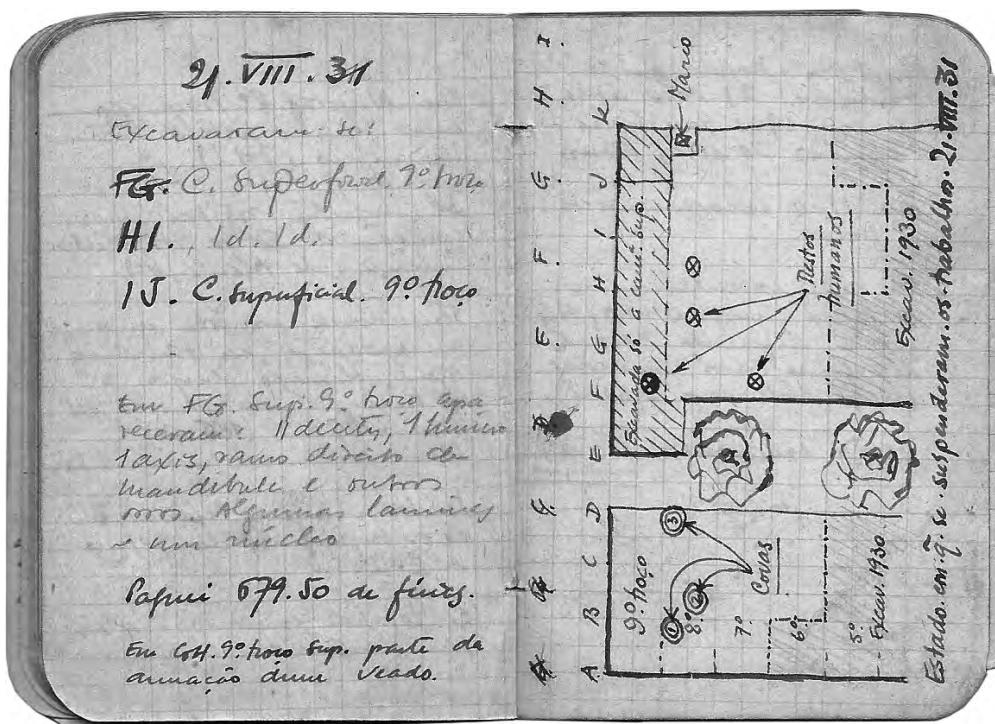 21.VIII.31
Excavaram-se:
FG. C. Superficial 9º troço
HI. Id. Id.
IJ. C. Superficial. 9º troço
Em FG. Sup. 9º troço apa
receram: 11 dentes, 1 húmero
1 axis, ramo direito de
mandibula e outros
ossos. Algumas laminas
e um núcleo
Paguei 679.50 de férias.
Em GH. 9º troço Sup. parte da
armação dum veado.
E F G H I
A B C D E F G H I J K
Mario
Excavada só a cam. sup.
Restos
humanos
Excav. 1930
9º troço
8º
7º
6º
5º
Excav. 1930
1
2
3
Covas
Estado em q̃ se suspenderam os trabalhos. 21.VIII.31